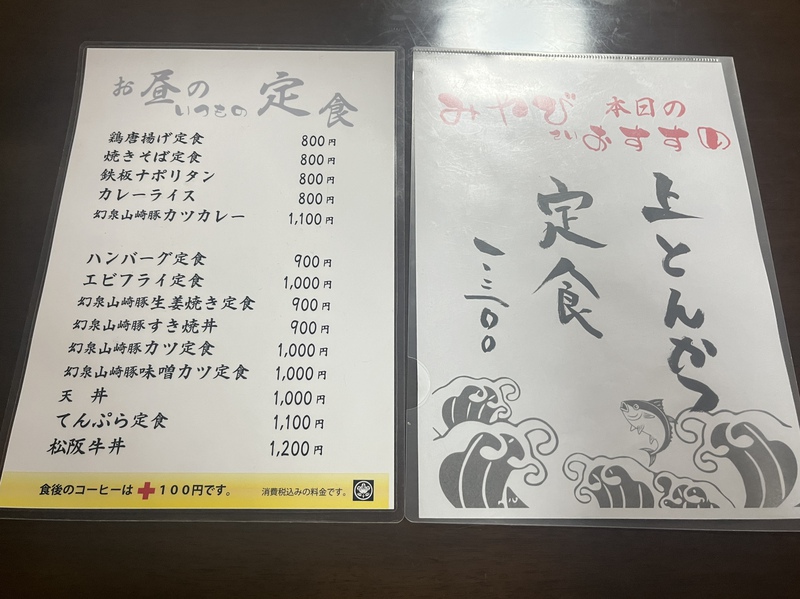 お昼の
いつもの 定食
鶏唐揚げ定食 800円
焼きそば定食 800円
鉄板ナポリタン 800円
カレーライス 800円
幻泉山崎豚カツカレー 1,100円
ハンバーグ定食 900円
エビフライ定食 1,000円
幻泉山崎豚生姜焼き定食 900円
幻泉山崎豚すき焼丼 900円
幻泉山崎豚カツ定食 1,000円
幻泉山崎豚味噌カツ定食 1,000円
天丼 1,000円
てんぷら定食 1,100円
松阪牛丼 1,200円
食後のコーヒーは+100円です。 消費税込みの料金です。
みやび 本日の
さい おすすめ
上とんかつ
定食
一三〇〇